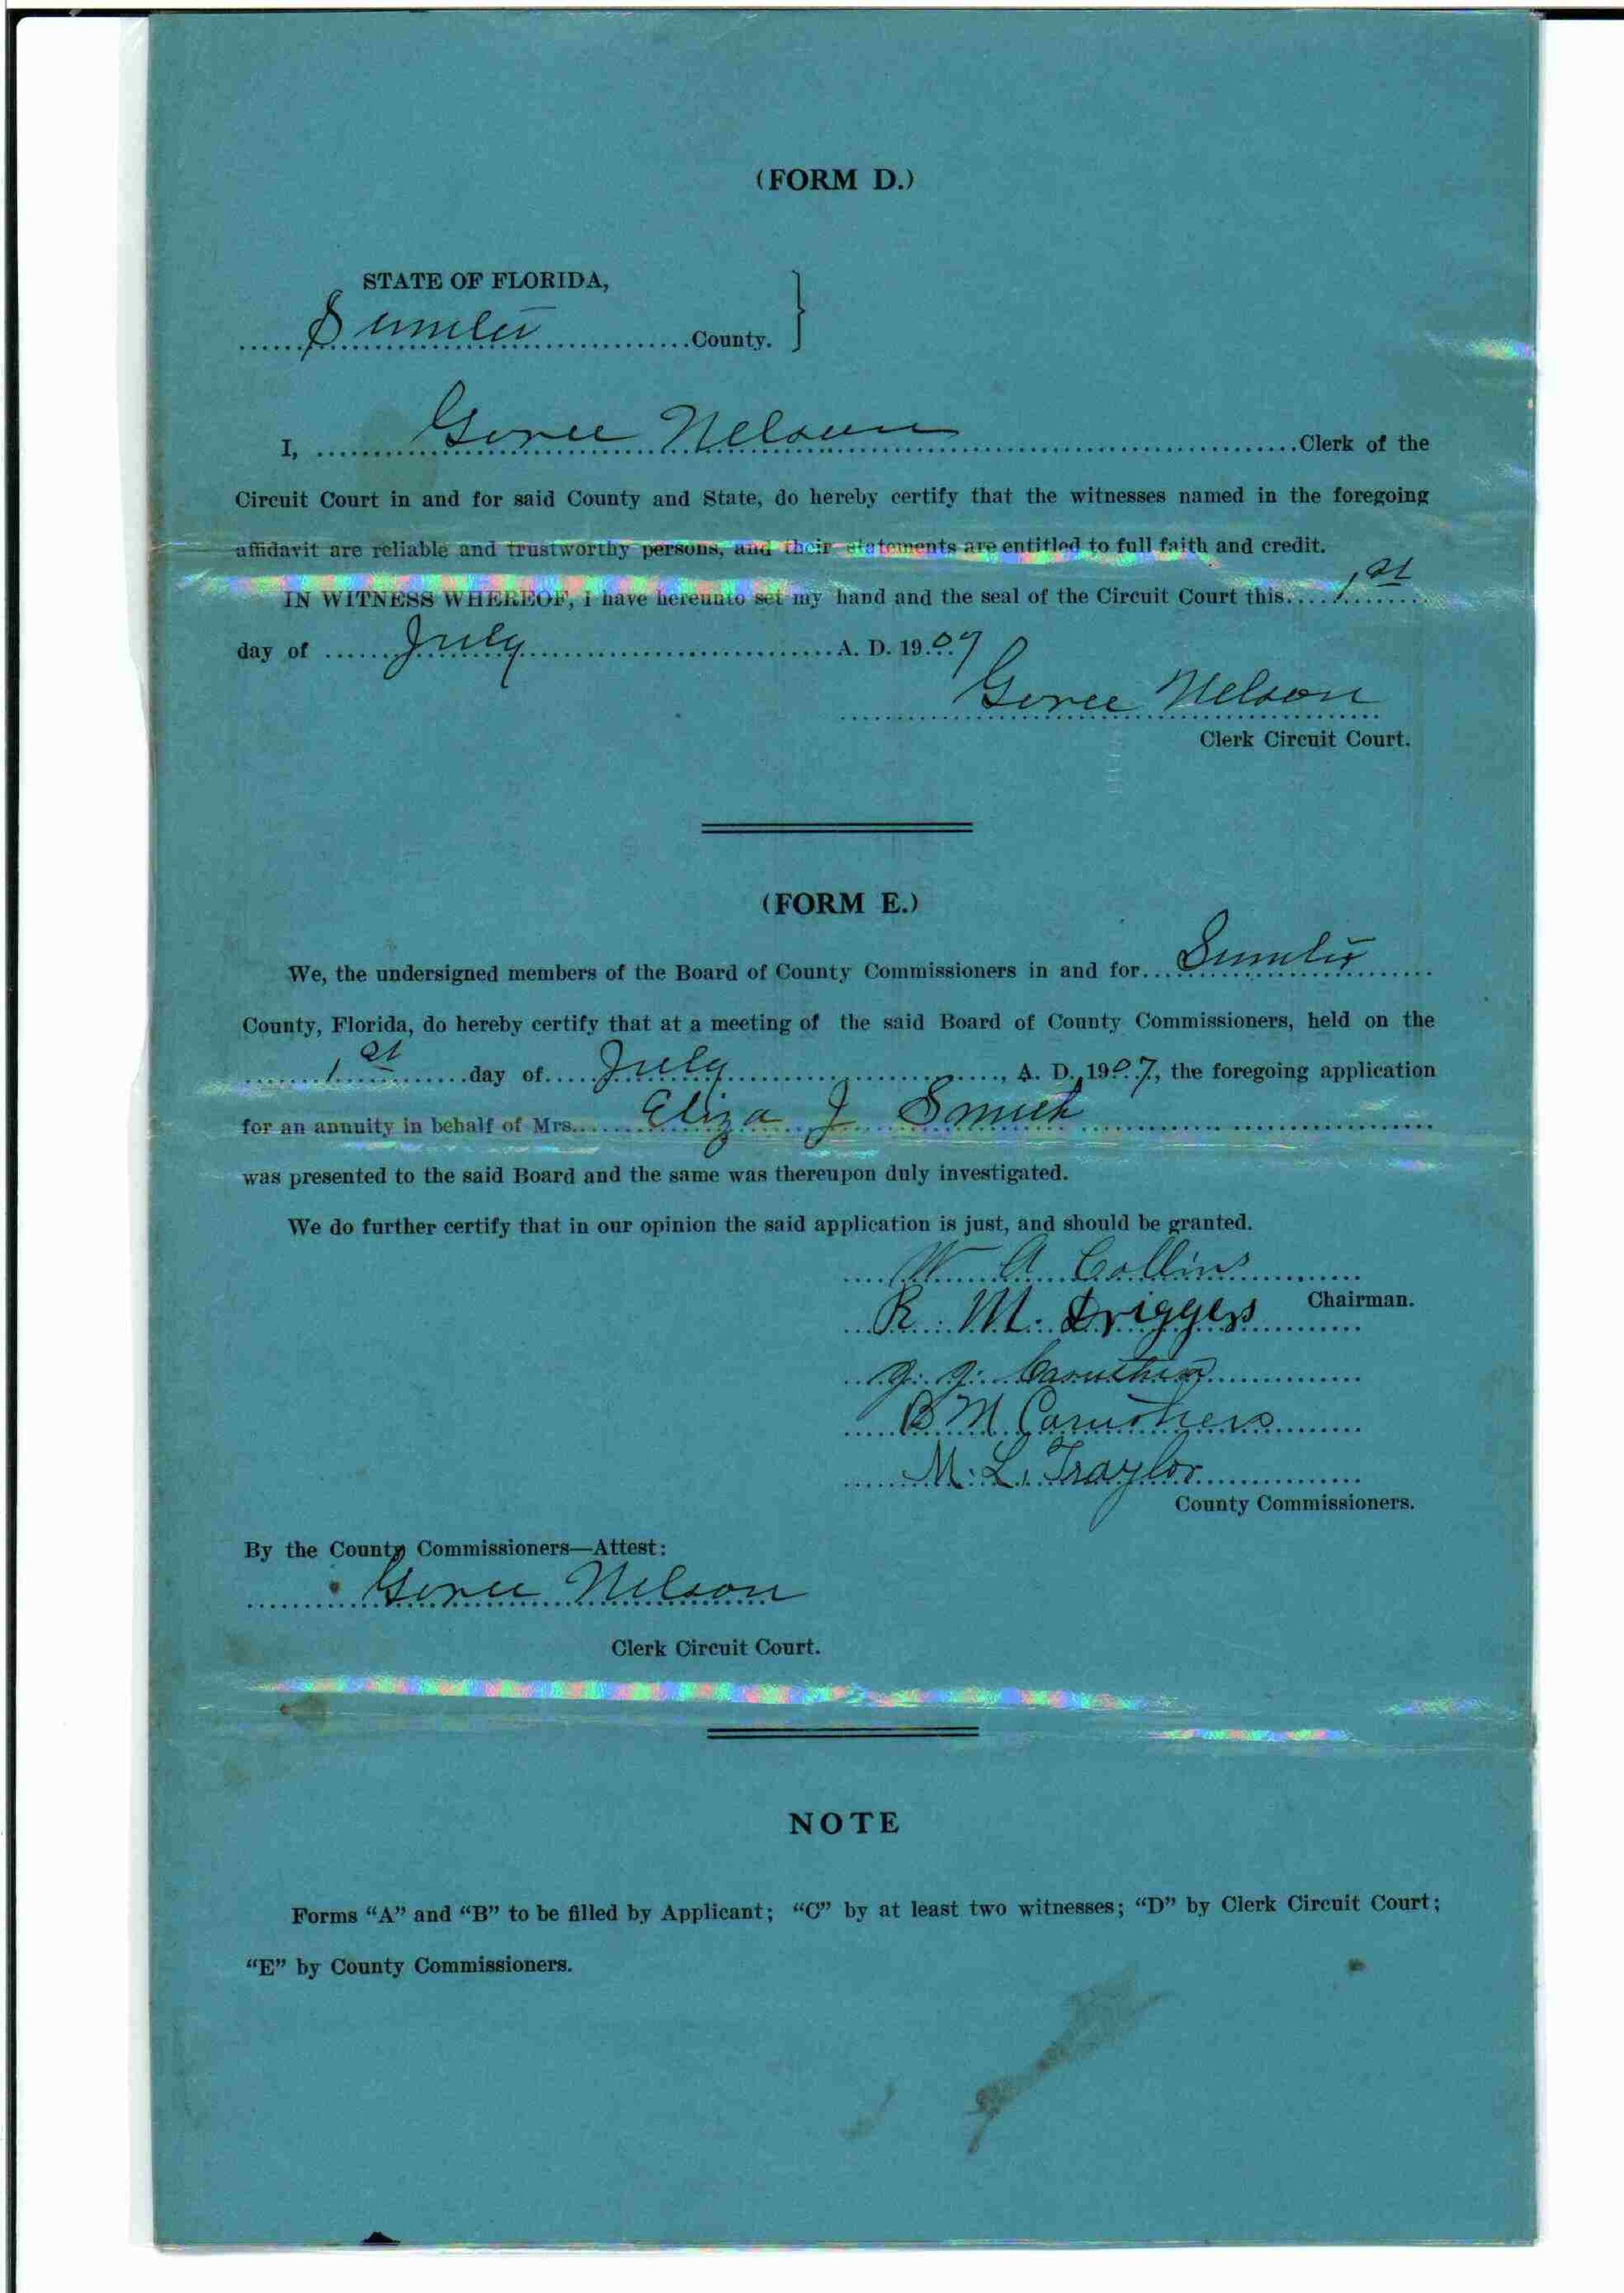 (FORM D.)
STATE OF FLORIDA,
Sumter County.
I, Goree Nelson Clerk of the
Circuit Court in and for said County and State, do hereby certify that the witnesses named in the foregoing
affidavit are reliable and trustworthy persons, and their statements are entitled to full faith and credit.
IN WITNESS WHEREOF, I have hereunto set my hand and the seal of the Circuit Court this 1st
day of July A. D. 1907
Goree Nelson
Clerk Circuit Court.
(FORM E.)
We, the undersigned members of the Board of County Commissioners in and for Sumter
County, Florida, do hereby certify that at a meeting of the said Board of County Commissioners, held on the
1st day of July, A. D. 1907, the foregoing application
for an annuity in behalf of Mrs. Eliza J Smith
was presented to the said Board and the same was thereupon duly investigated.
We do further certify that in our opinion the said application is just, and should be granted.
W A Collins
Chairman.
R. M. Driggers
J. J. Caruthers
B M Caruthers
M. L. Traylor
County Commissioners.
By the County Commissioners—Attest:
Goree Nelson
Clerk Circuit Court.
NOTE
Forms “A” and “B” to be filled by Applicant; “C” by at least two witnesses; “D” by Clerk Circuit Court;
“E” by County Commissioners.